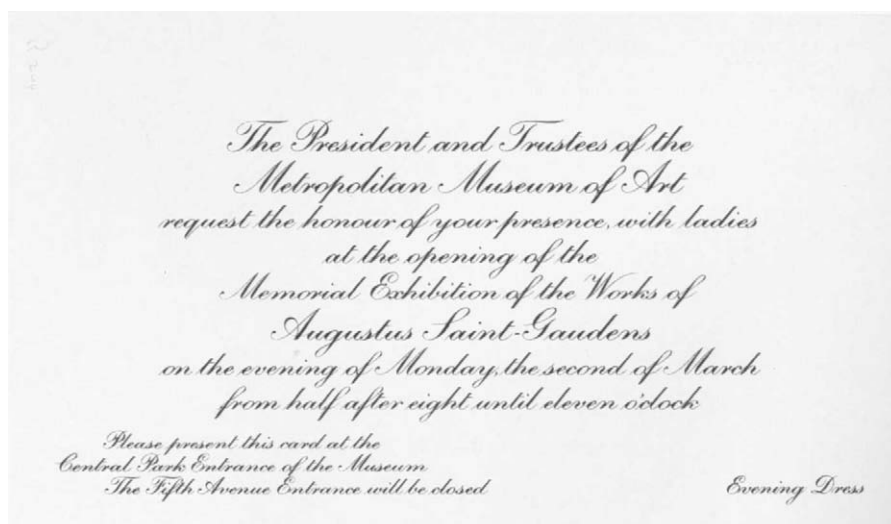 The President and Trustees of the
Metropolitan Museum of Art
request the honour of your presence, with ladies
at the opening of the
Memorial Exhibition of the Works of
Augustus Saint-Gaudens
on the evening of Monday, the second of March
from half after eight until eleven o'clock
Please present this card at the
Central Park Entrance of the Museum
The Fifth Avenue Entrance will be closed
Evening Dress